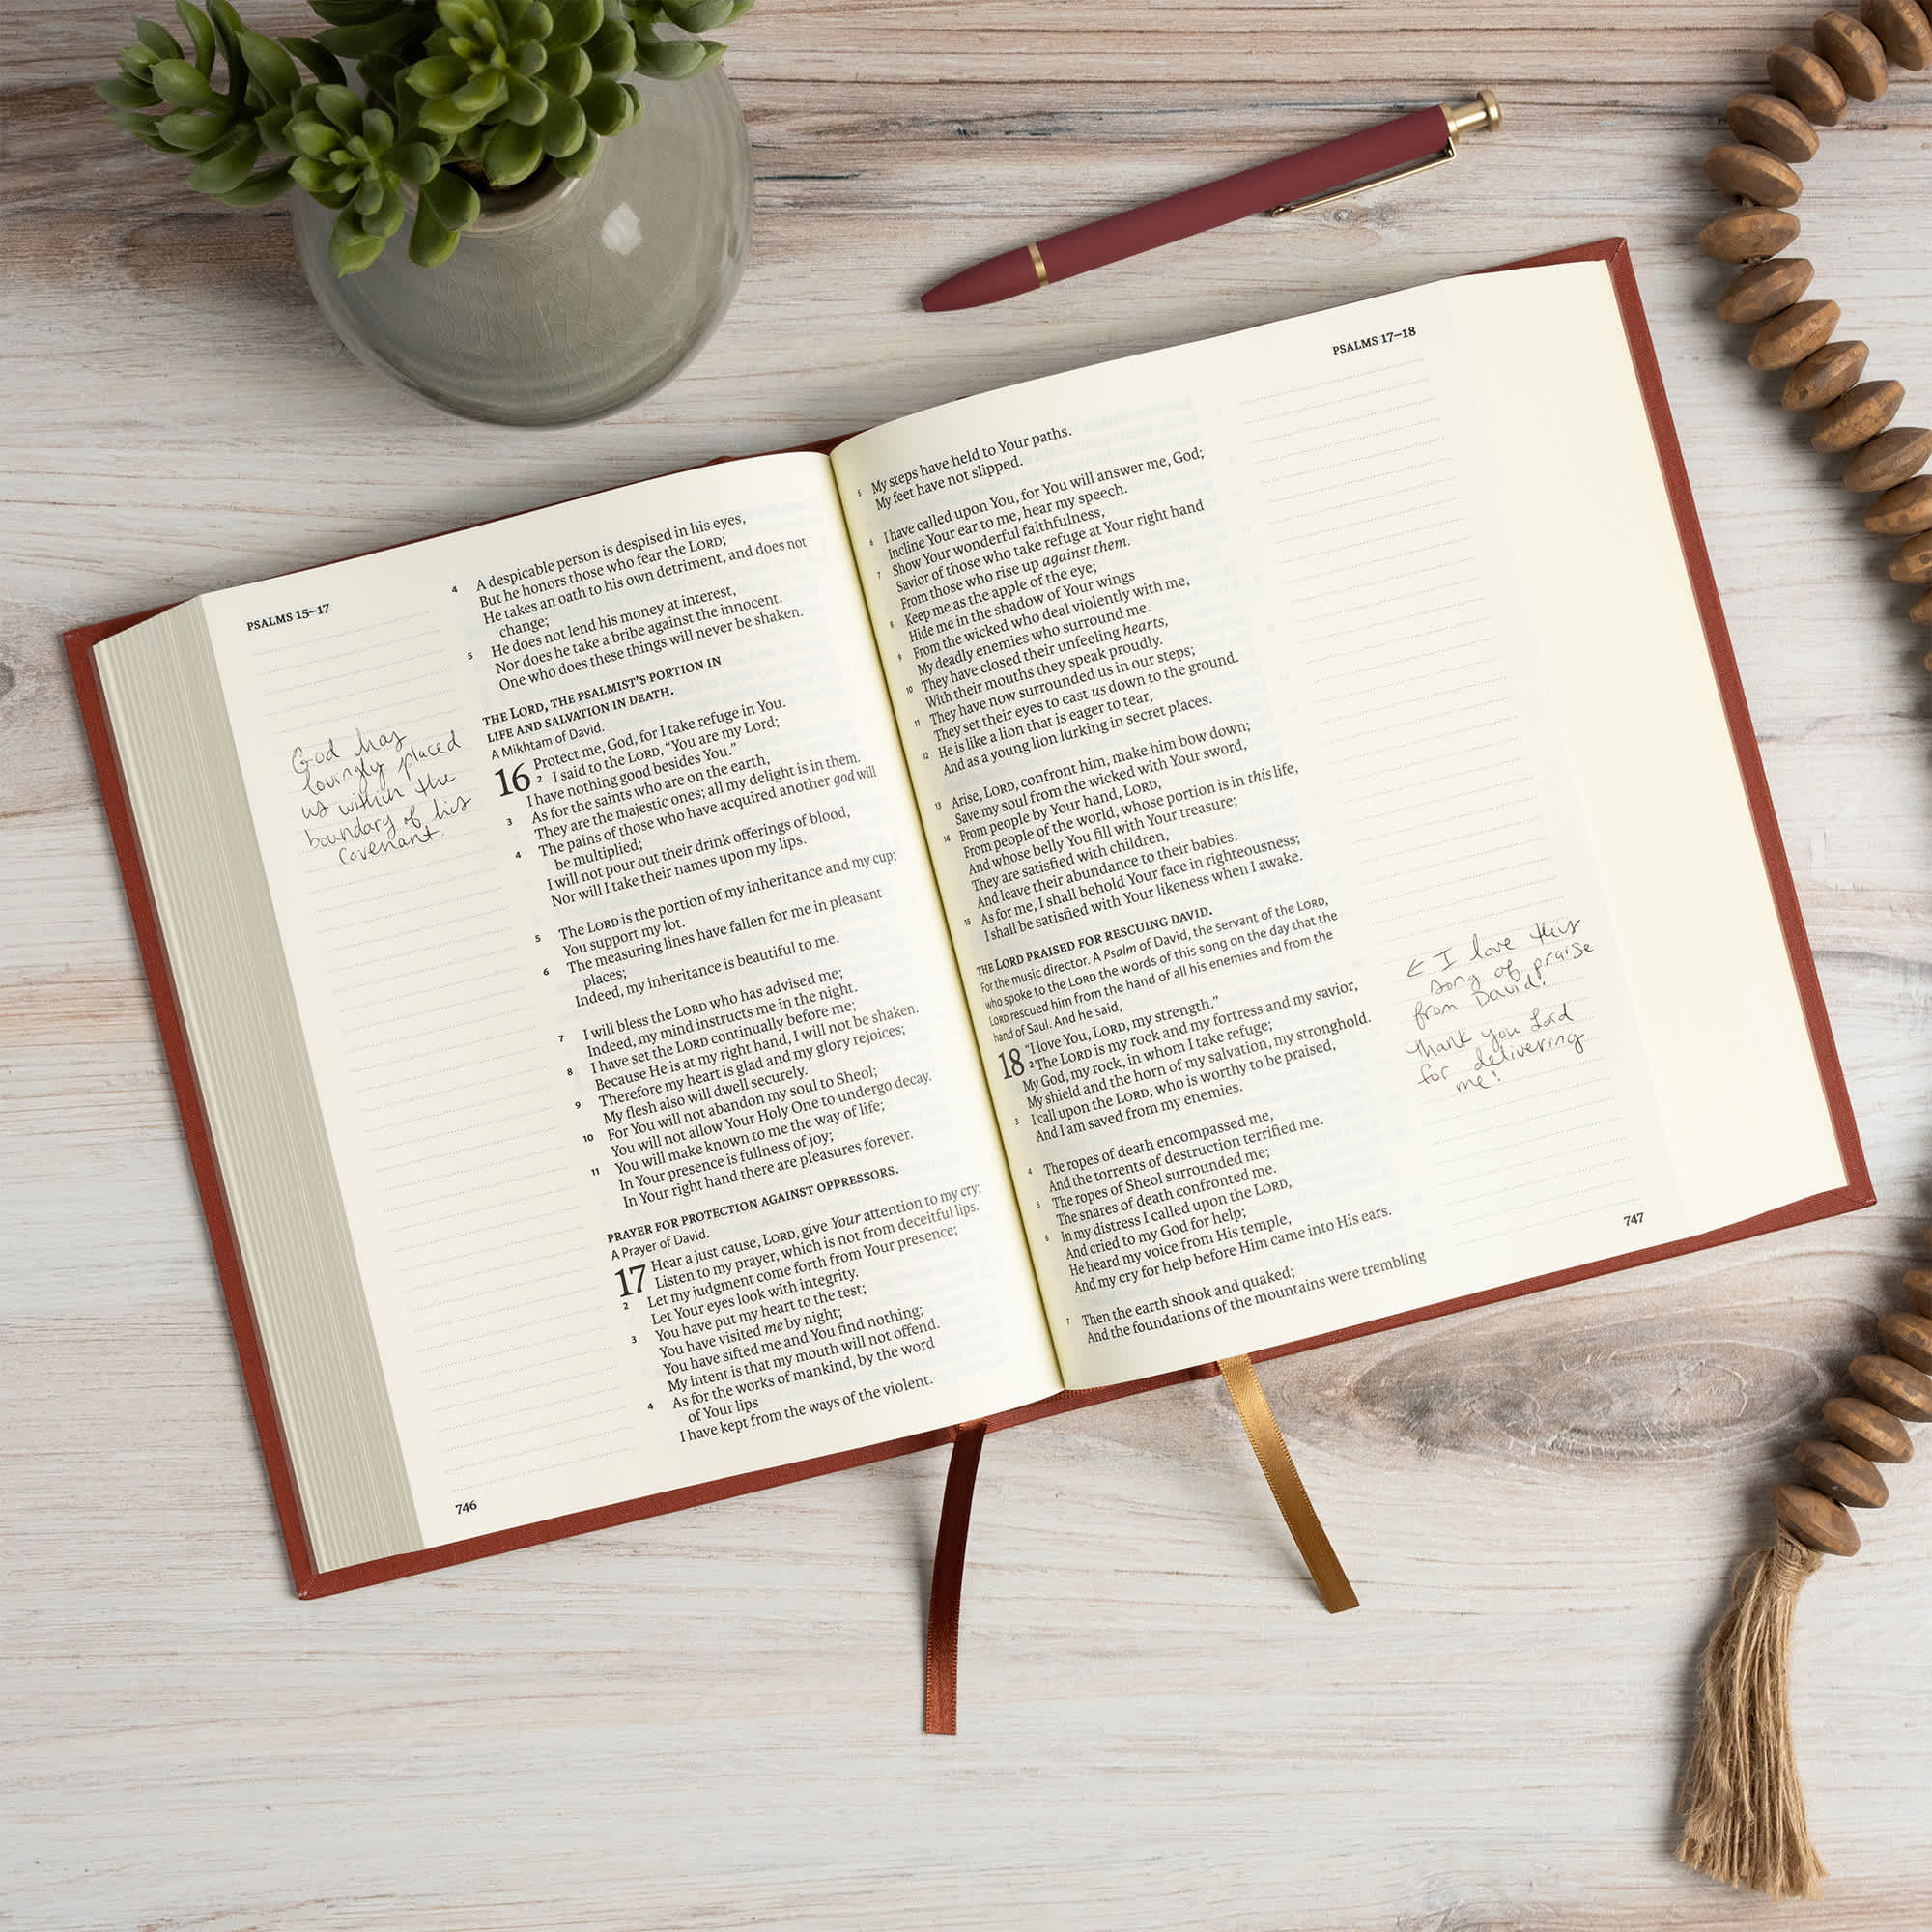 PSALMS 15–17
4 A despicable person is despised in his eyes,
But he honors those who fear the LORD;
He takes an oath to his own detriment, and does not
change;
5 He does not lend his money at interest,
Nor does he take a bribe against the innocent.
One who does these things will never be shaken.
THE LORD, THE PSALMIST’S PORTION IN
LIFE AND SALVATION IN DEATH.
A Mikhtam of David.
16 Protect me, God, for I take refuge in You.
2 I said to the LORD, “You are my Lord;
I have nothing good besides You.”
3 As for the saints who are on the earth,
They are the majestic ones; all my delight is in them.
4 The pains of those who have acquired another god will
be multiplied;
I will not pour out their drink offerings of blood,
Nor will I take their names upon my lips.
5 The LORD is the portion of my inheritance and my cup;
You support my lot.
6 The measuring lines have fallen for me in pleasant
places;
Indeed, my inheritance is beautiful to me.
7 I will bless the LORD who has advised me;
Indeed, my mind instructs me in the night.
8 I have set the LORD continually before me;
Because He is at my right hand, I will not be shaken.
9 Therefore my heart is glad and my glory rejoices;
My flesh also will dwell securely.
10 For You will not abandon my soul to Sheol;
You will not allow Your Holy One to undergo decay.
11 You will make known to me the way of life;
In Your presence is fullness of joy;
In Your right hand there are pleasures forever.
PRAYER FOR PROTECTION AGAINST OPPRESSORS.
A Prayer of David.
17 Hear a just cause, LORD, give Your attention to my cry;
Listen to my prayer, which is not from deceitful lips.
2 Let my judgment come forth from Your presence;
Let Your eyes look with integrity.
3 You have put my heart to the test;
You have visited me by night;
You have sifted me and You find nothing;
My intent is that my mouth will not offend.
4 As for the works of mankind, by the word
of Your lips
I have kept from the ways of the violent.
God has
lovingly placed
us within the
boundary of his
Covenant.
746
PSALMS 17–18
5 My steps have held to Your paths.
My feet have not slipped.
6 I have called upon You, for You will answer me, God;
Incline Your ear to me, hear my speech.
7 Show Your wonderful faithfulness,
Savior of those who take refuge at Your right hand
From those who rise up against them.
8 Keep me as the apple of the eye;
Hide me in the shadow of Your wings
9 From the wicked who deal violently with me,
My deadly enemies who surround me.
10 They have closed their unfeeling hearts,
With their mouths they speak proudly.
11 They have now surrounded us in our steps;
They set their eyes to cast us down to the ground.
12 He is like a lion that is eager to tear,
And as a young lion lurking in secret places.
13 Arise, LORD, confront him, make him bow down;
Save my soul from the wicked with Your sword,
14 From people by Your hand, LORD,
From people of the world, whose portion is in this life,
And whose belly You fill with Your treasure;
They are satisfied with children,
And leave their abundance to their babies.
15 As for me, I shall behold Your face in righteousness;
I shall be satisfied with Your likeness when I awake.
THE LORD PRAISED FOR RESCUING DAVID.
For the music director. A Psalm of David, the servant of the LORD,
who spoke to the LORD the words of this song on the day that the
LORD rescued him from the hand of all his enemies and from the
hand of Saul. And he said,
18 “I love You, LORD, my strength.”
2 The LORD is my rock and my fortress and my savior,
My God, my rock, in whom I take refuge;
My shield and the horn of my salvation, my stronghold.
3 I call upon the LORD, who is worthy to be praised,
And I am saved from my enemies.
4 The ropes of death encompassed me,
And the torrents of destruction terrified me.
5 The ropes of Sheol surrounded me;
The snares of death confronted me.
6 In my distress I called upon the LORD,
And cried to my God for help;
He heard my voice from His temple,
And my cry for help before Him came into His ears.
7 Then the earth shook and quaked;
And the foundations of the mountains were trembling
← I love this
song of praise
from David!
Thank you Lord
for delivering
me!
747